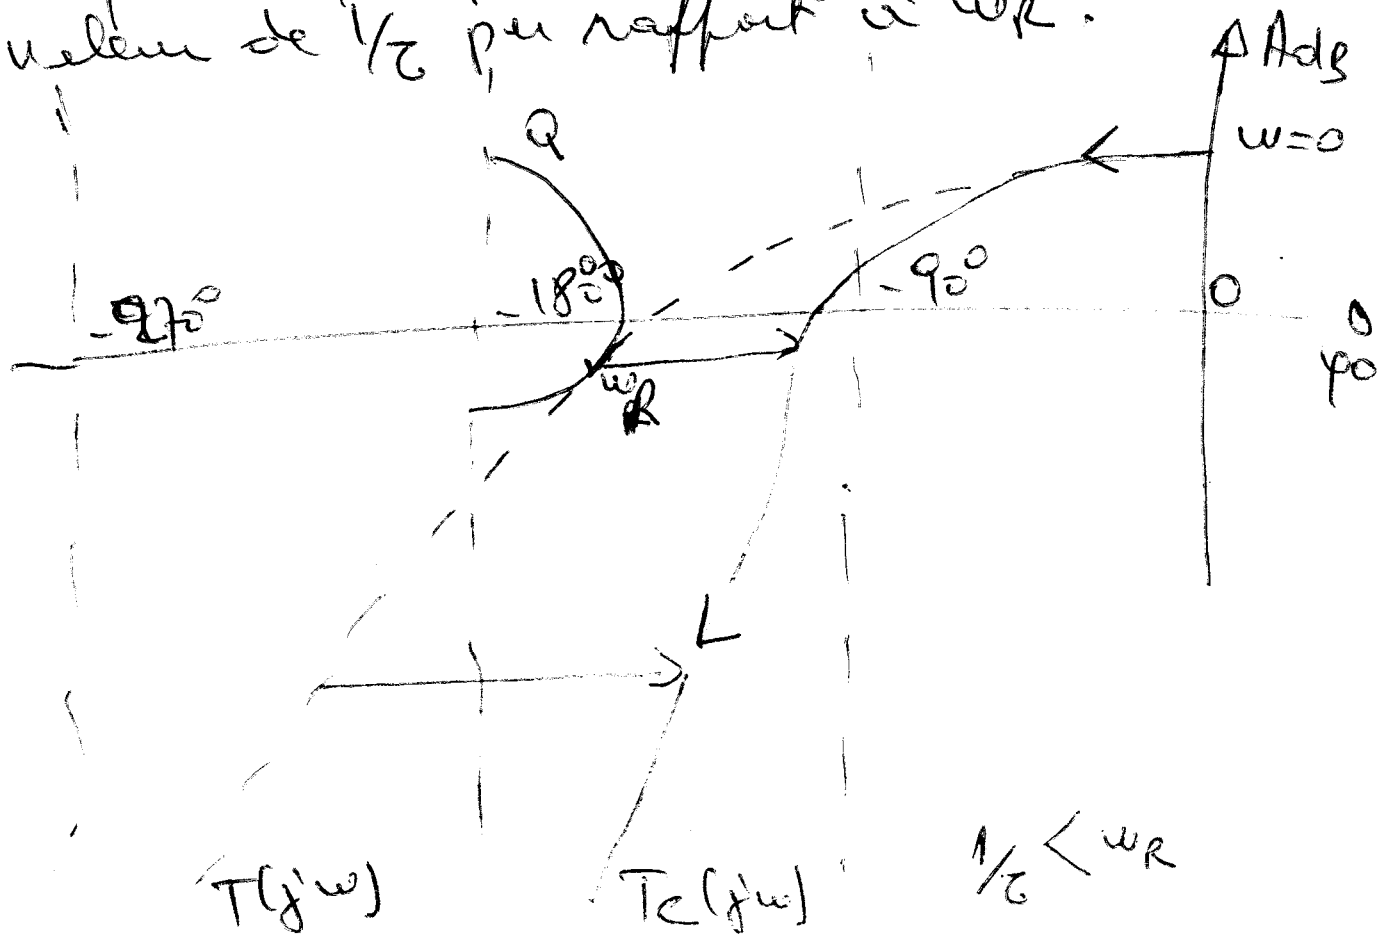 valeur de 1/τ par rapport à ωR.
AdB
ω=0
Q
-270°
-180°
-90°
0
φ°
ωR
L
T(jω)
Tc(jω)
1/τ < ωR